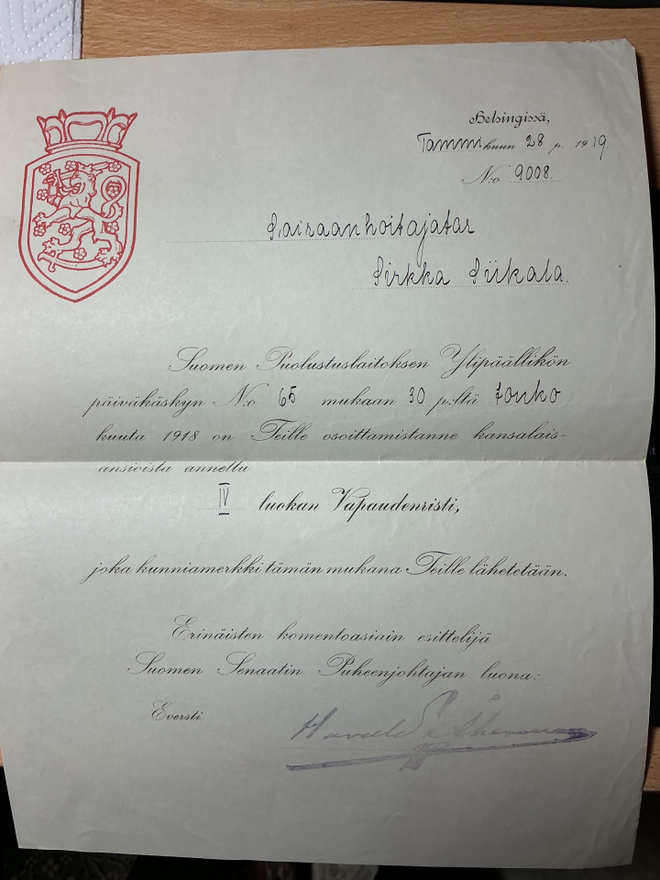 Helsingissä,
Tammikuun 28 p. 1919.
N:o 9008.
Sairaanhoitajatar
Sirkka Siikala.
Suomen Puolustuslaitoksen Ylipäällikön
päiväkäskyn N:o 65 mukaan 30 p:ltä touko
kuuta 1918 on Teille osoittamistanne kansalais-
ansioista annettu
IV luokan Vapaudenristi,
joka kunniamerkki tämän mukana Teille lähetetään.
Erinäisten komentoasiain esittelijä
Suomen Senaatin Puheenjohtajan luona:
Eversti
Harald Åkerman